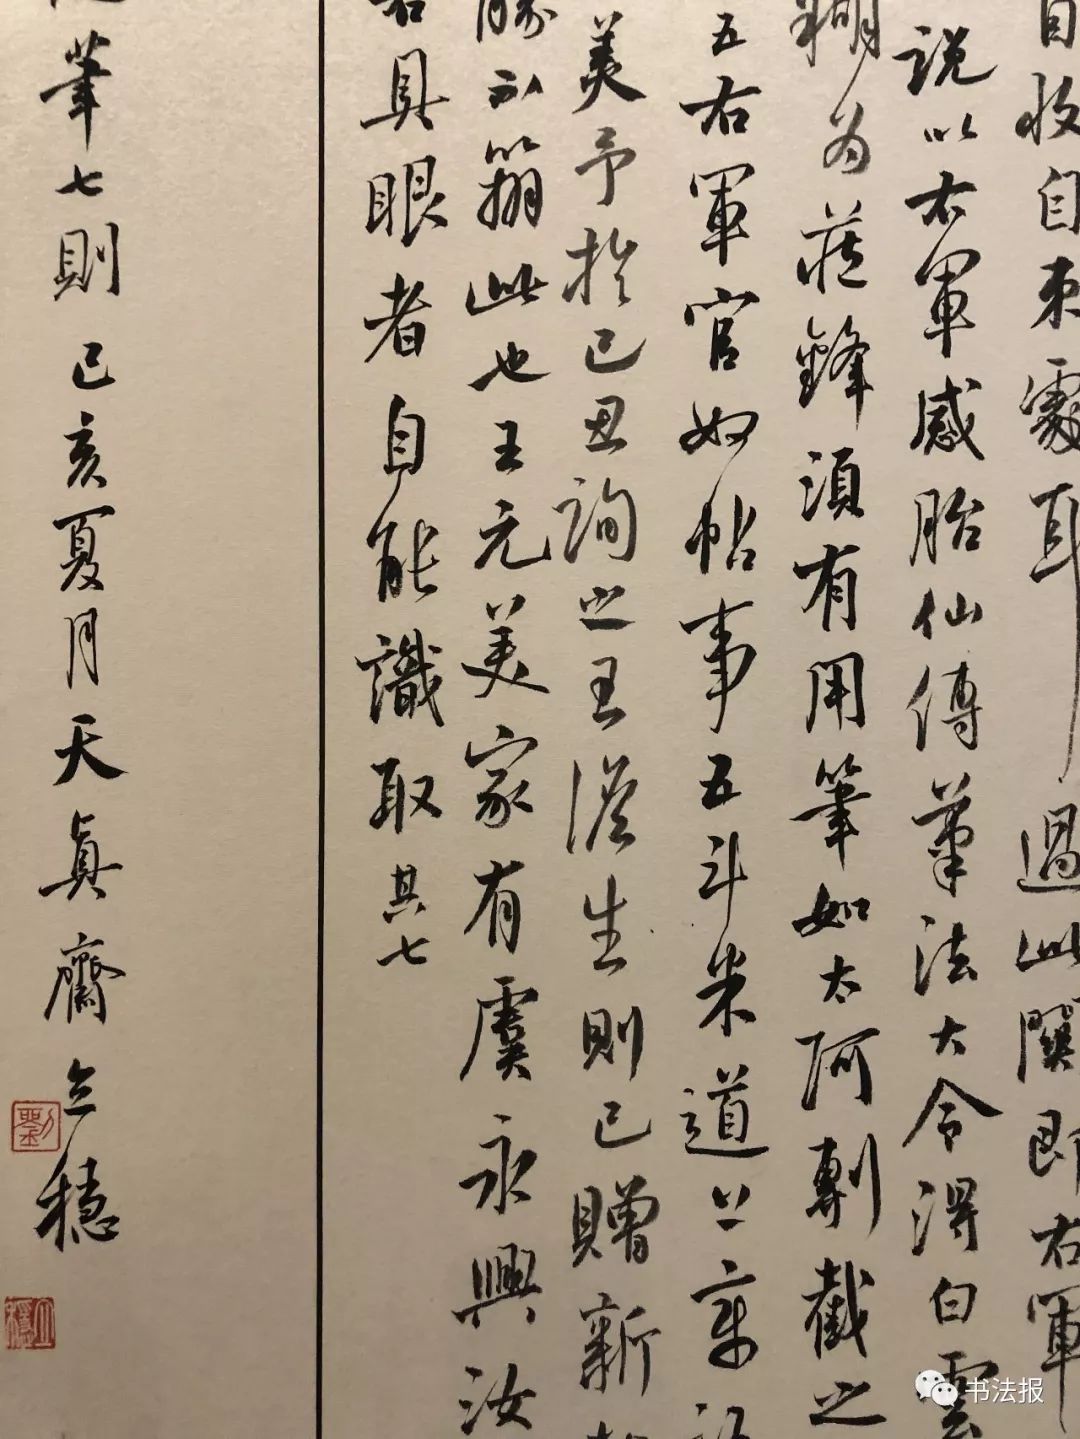 自收自束處耳過此關即右軍
說以右軍感胎仙傳筆法大令得白雲
糊為藏鋒須有用筆如太阿剸截之
五右軍官奴帖事五斗米道上章
美予於己丑詢之王澹生則已贈新
此也王元美家有虞永興汝
具眼者自能識取其七
筆七則己亥夏月天真齋立穩
劉
立穩
书法报